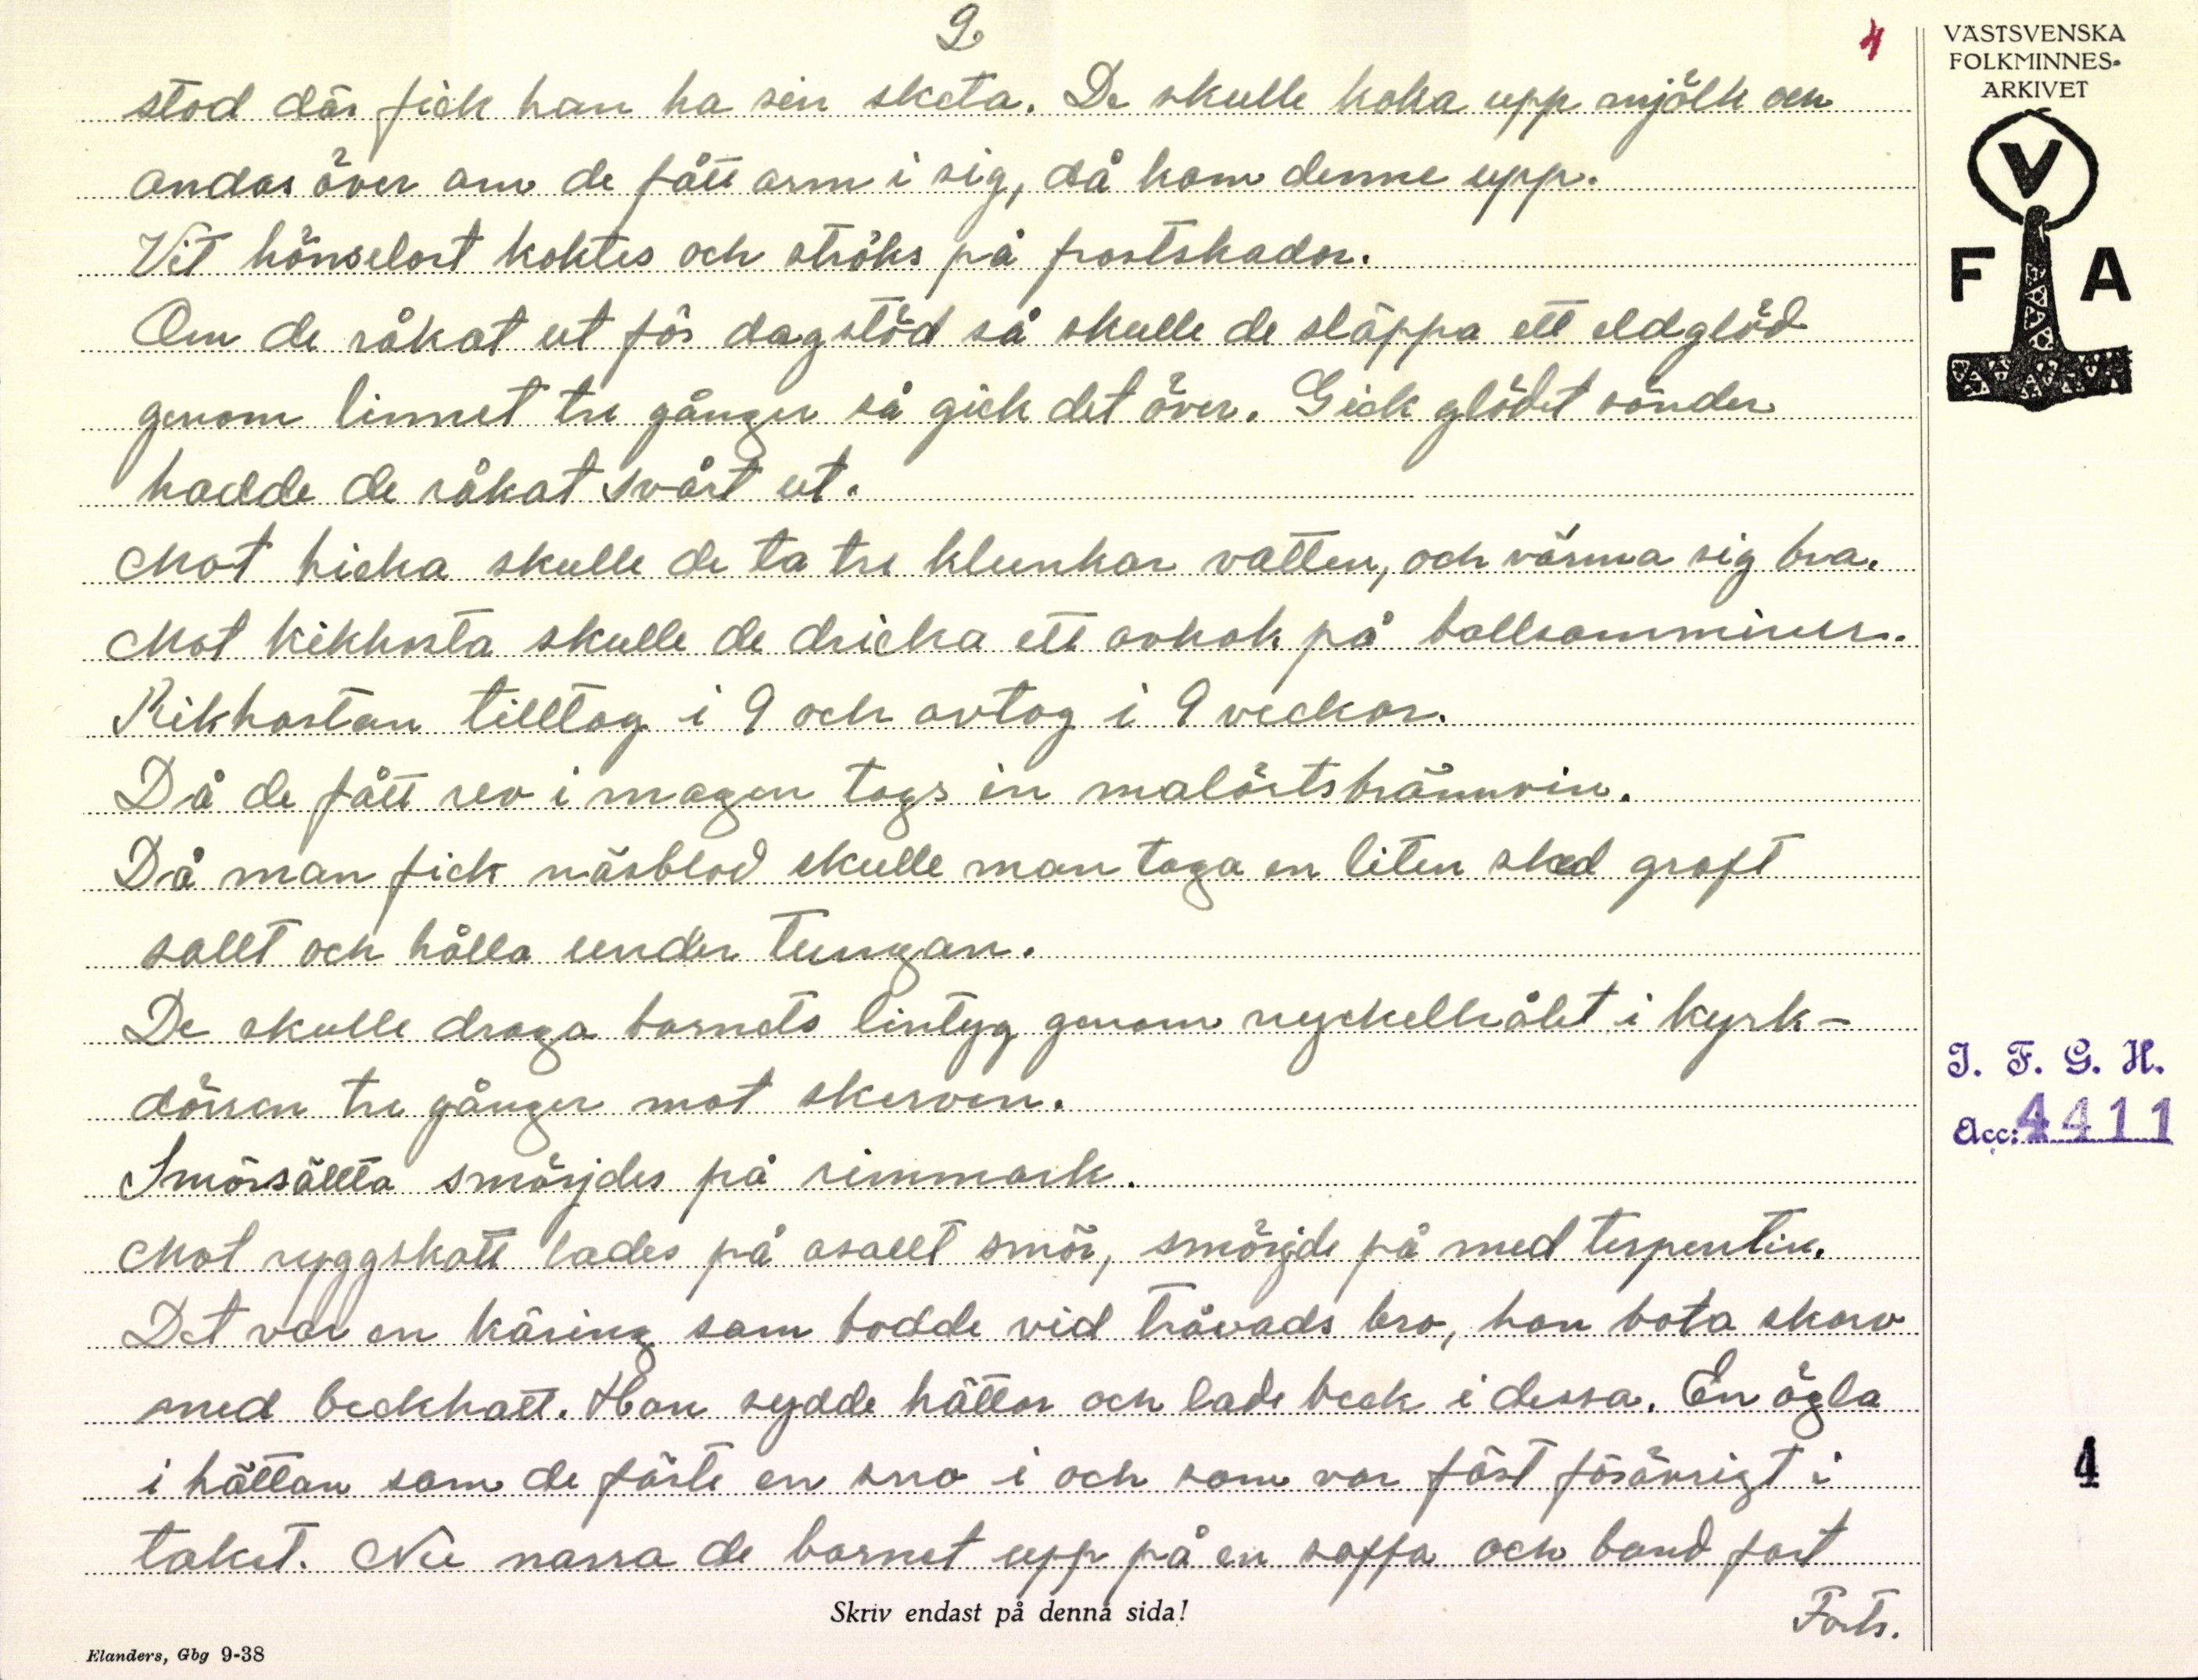 2.
4
VÄSTSVENSKA
FOLKMINNES-
ARKIVET
V
F A
stod där fick han ha sin sketa. De skulle koka upp mjölk och
andas över om de fått orm i sig, då kom denne upp.
Vit hönselort koktes och ströks på frostskador.
Om de råkat ut för dagstöd så skulle de släppa ett eldglöd
genom linnet tre gånger så gick det över. Gick glödet sönder
hadde de råkat svårt ut.
Mot hicka skulle de ta tre klunkar vatten, och värma sig bra.
Mot kikhosta skulle de dricka ett avkok på
Kikhostan tilltog i 9 och avtog i 9 veckor.
Då de fått rev i magen togs in malörtsbrännvin.
Då man fick näsblod skulle man taga en liten sked groft
sallt och hålla under tungan.
De skulle draga barnets lintyg genom nyckelhålet i kyrk-
dörren tre gånger mot skerven.
Smörsällta smörjdes på rimmark.
Mot ryggskott lades på osallt smör, smörjde på med terpentin.
Det var en käring som bodde vid Tråvads bro, hon bota skorv
med beckhatt. Hon sydde hättor och lade beck i dessa. En ögla
i hättan som de fäste en sno i och som var fäst förövrigt i
taket. Nu narra de barnet upp på en soffa och band fast
Forts.
Skriv endast på denna sida!
Elanders, Gbg 9-38
I. F. G. H.
Acc: 4411
4